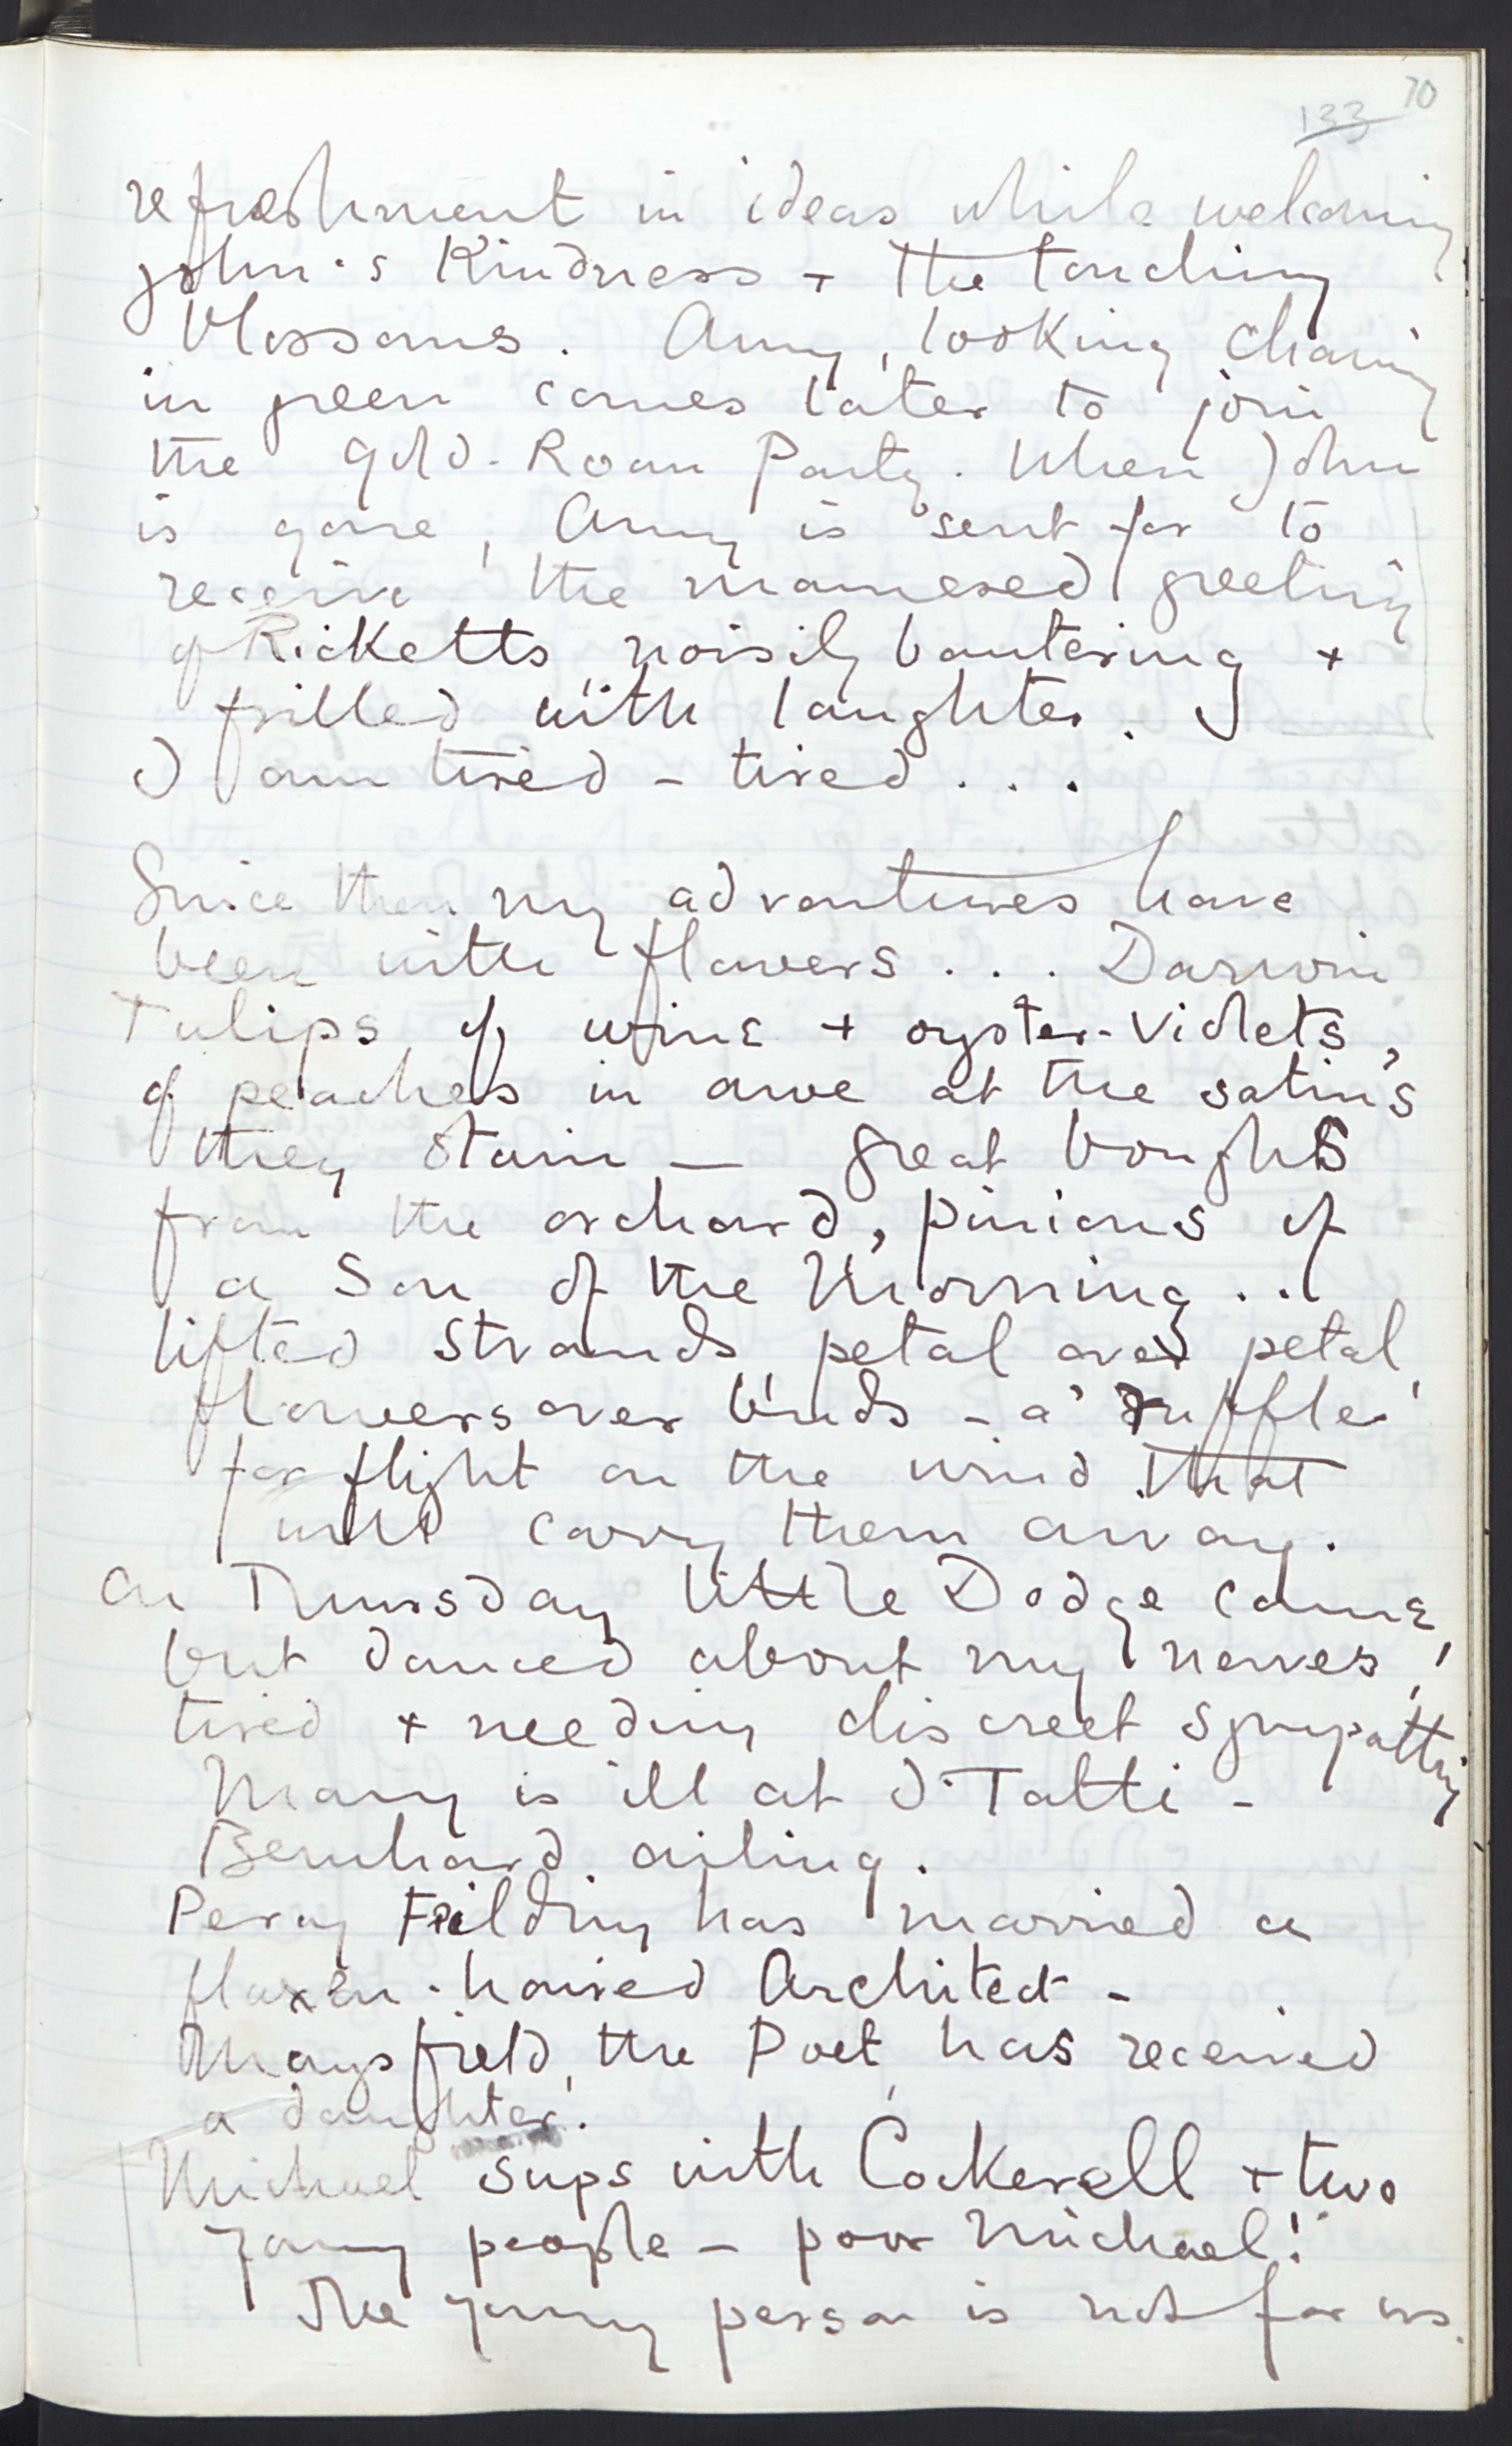 133 70
refreshment in ideas while welcoming
John's Kindness + the touching
blossoms. Amy, looking charming
in green comes later to join
the Gold-Room Party. When John
is gone, Amy is sent for to
receive the mannered greeting
of Ricketts, noisily bantering +
frilled with laughter.
I am tired – tired . . .
Since then my adventures have
been with flowers . . . Darwin
Tulips of wine + oyster-violets,
of peaches in awe at the satins
they stain — great boughs
from the orchard, pinions of
a Son of the Morning . . .
lifted strands, petal over petal,
flowers over buds – a ruffle
for flight on the wind that
will carry them away.
On Thursday little Dodge came,
but danced about my nerves,
tired + needing discreet sympathy
Mary is ill at I Tatti –
Bernhard ailing.
Percy Feilding has married a
flaxen-haired Architect –
Maysfield, the Poet, has received
a daughter.
Michael sups with Cockerell + two
young people – poor Michael!
The young person is not for us.